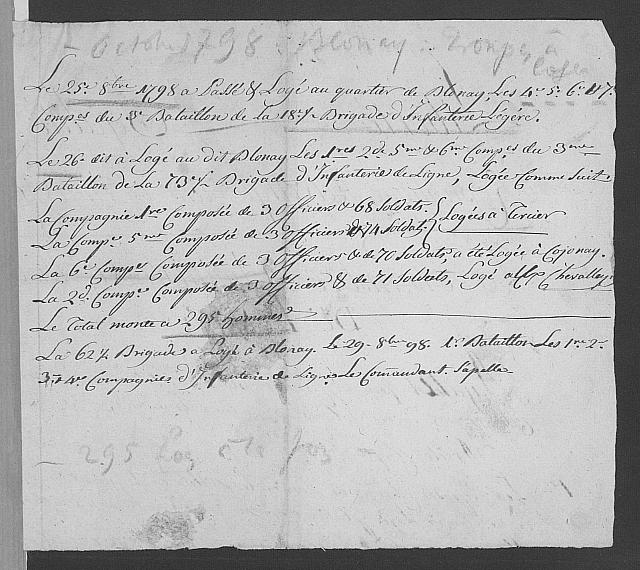 Octobre 1798. Blonay. Troupes à
loger
Le 25e 8bre 1798 a Passé & Logé au quartier de Blonay, Les 4e 5e 6e et 7e
Compes du 3e Bataillon de La 18e/ Brigade d'Infanterie Légére.
Le 26e dit à Logé au dit Blonay Les 1res 2de 5me & 6me Compes du 3eme
Bataillon de La 73e/ Brigade d'Infanterie de Ligne, Logée Comme Suit
La Compagnie 1re Composée de 3 Officiers & 68 Soldats. } Logés a Tercier
La Compe 5me Composée de 3 Officiers & 74 Soldats }
La 6e Compe Composée de 3 Officiers & de 70 Soldats, a été Logée à Cojonay.
La 2de Compe Composée de 3 Officiers & de 71 Soldats, Logé a Chevalley
Le Total monte a 295 hommes
La 62e/ Brigade a Logé à Blonay. Le 29e 8bre 98. 1r Bataillon Les 1re 2e
3e et 4me Compagnies d'Infanterie de Ligne Le Commandant Sapelle
295